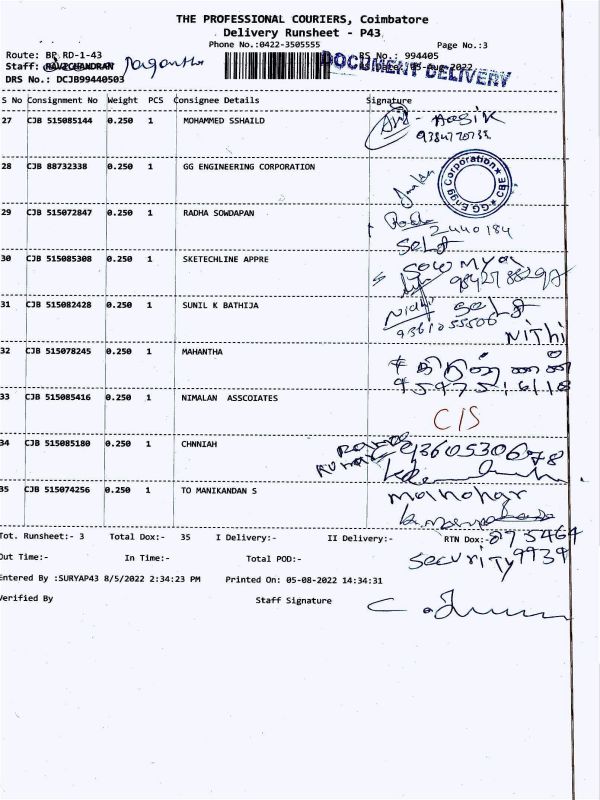 THE PROFESSIONAL COURIERS, Coimbatore
Delivery Runsheet - P43
Phone No.:0422-3505555 Page No.:3
Route: BP RD-1-43 RS No.: 994405
Staff: RAVICHANDRAN RS Date: 05-Aug-2022
DOCUMENT DELIVERY
DRS No.: DCJB99440503
S No Consignment No Weight PCS Consignee Details Signature
27 CJB 515085144 0.250 1 MOHAMMED SSHAILD
28 CJB 88732338 0.250 1 GG ENGINEERING CORPORATION
GG Engg Corporation CBE
29 CJB 515072847 0.250 1 RADHA SOWDAPAN
2440184
Self
30 CJB 515085308 0.250 1 SKETECHLINE APPRE
Sowmya
31 CJB 515082428 0.250 1 SUNIL K BATHIJA
Nidhi Self
9361055506
NiTHi
32 CJB 515078245 0.250 1 MAHANTHA
33 CJB 515085416 0.250 1 NIMALAN ASSCOIATES
C/S
34 CJB 515085180 0.250 1 CHNNIAH
9360530678
35 CJB 515074256 0.250 1 TO MANIKANDAN S
manohar
Tot. Runsheet:- 3 Total Dox:- 35 I Delivery:- II Delivery:- RTN Dox:-
875464
Out Time:- In Time:- Total POD:-
security 9939
Entered By :SURYAP43 8/5/2022 2:34:23 PM Printed On: 05-08-2022 14:34:31
Verified By Staff Signature